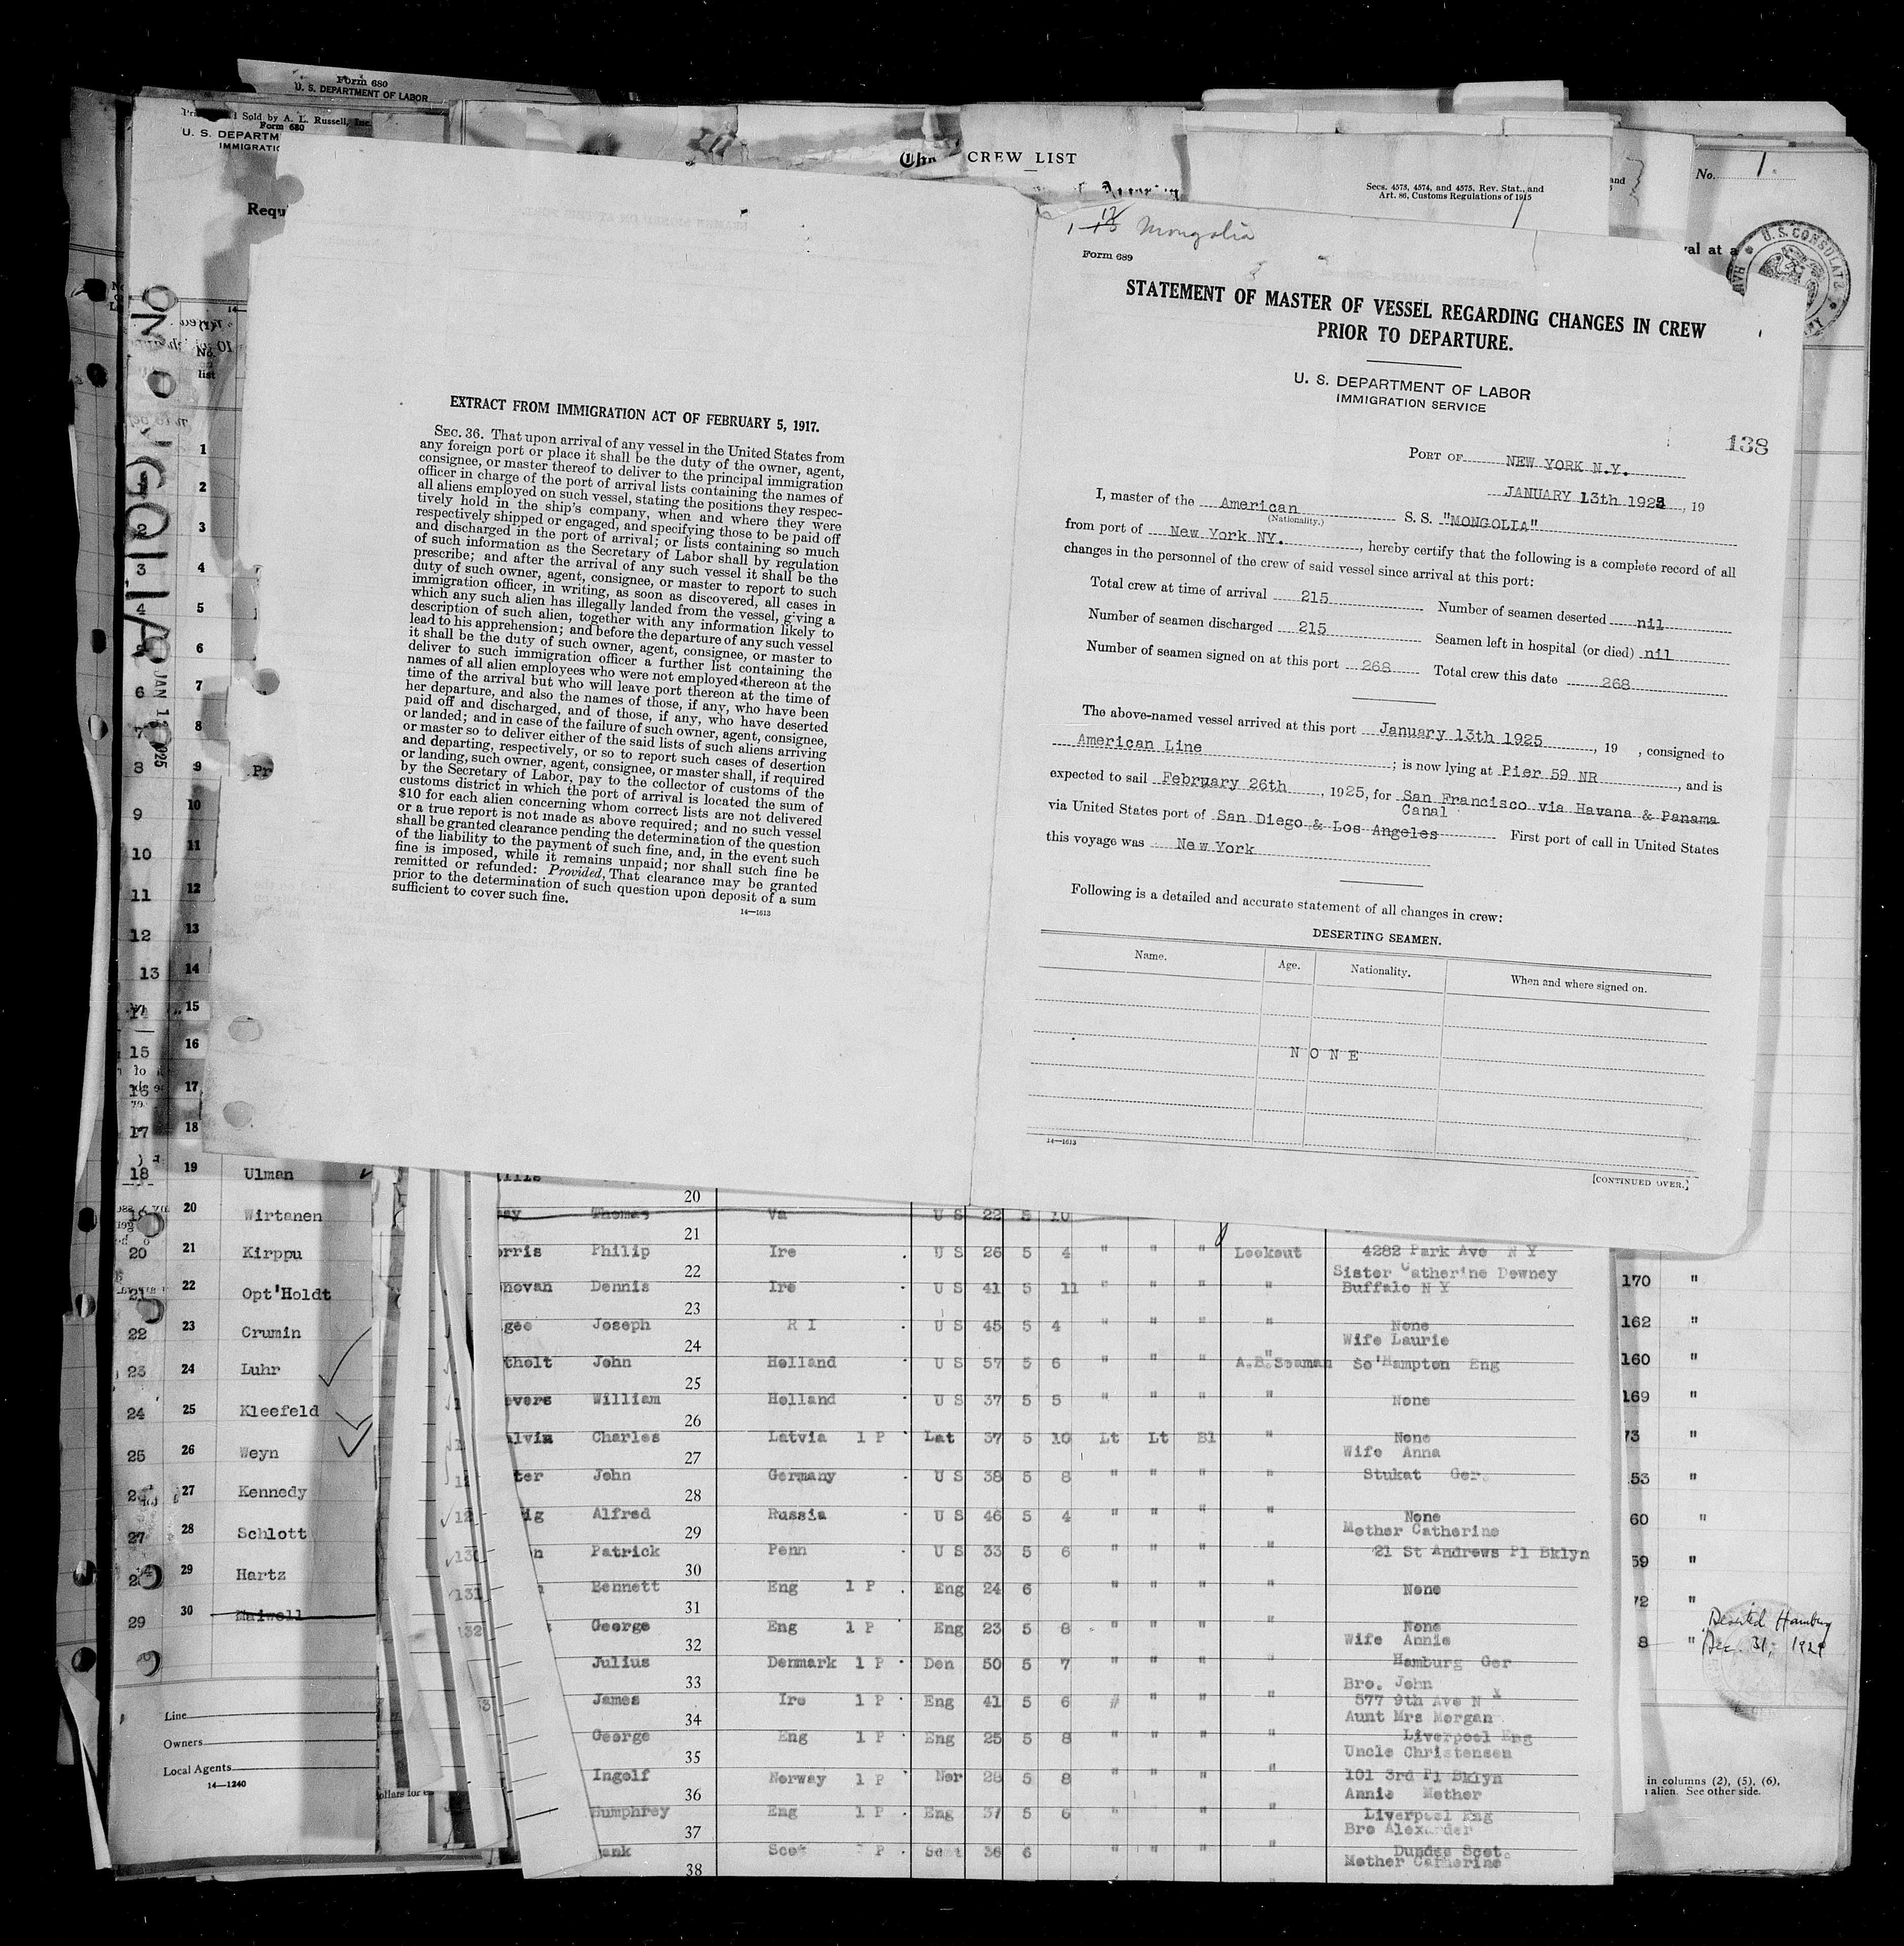 Form 680
U. S. DEPARTMENT OF LABOR
Sold by A. L. Russell, Inc.
Form 680
U. S. DEPARTM
IMMIGRATIO
Requ
CREW LIST
Secs. 4573, 4574, and 4575, Rev. Stat., and
Art. 86, Customs Regulations of 1915
and
No. 1.
val at a
U. S. CONSULATE
MONGOLIA
JAN 13 1925
No.
list
EXTRACT FROM IMMIGRATION ACT OF FEBRUARY 5, 1917.
SEC. 36. That upon arrival of any vessel in the United States from
any foreign port or place it shall be the duty of the owner, agent,
consignee, or master thereof to deliver to the principal immigration
officer in charge of the port of arrival lists containing the names of
all aliens employed on such vessel, stating the positions they respec-
tively hold in the ship's company, when and where they were
respectively shipped or engaged, and specifying those to be paid off
and discharged in the port of arrival; or lists containing so much
of such information as the Secretary of Labor shall by regulation
prescribe; and after the arrival of any such vessel it shall be the
duty of such owner, agent, consignee, or master to report to such
immigration officer, in writing, as soon as discovered, all cases in
which any such alien has illegally landed from the vessel, giving a
description of such alien, together with any information likely to
lead to his apprehension; and before the departure of any such vessel
it shall be the duty of such owner, agent, consignee, or master to
deliver to such immigration officer a further list containing the
names of all alien employees who were not employed thereon at the
time of the arrival but who will leave port thereon at the time of
her departure, and also the names of those, if any, who have been
paid off and discharged, and of those, if any, who have deserted
or landed; and in case of the failure of such owner, agent, consignee,
or master so to deliver either of the said lists of such aliens arriving
and departing, respectively, or so to report such cases of desertion
or landing, such owner, agent, consignee, or master shall, if required
by the Secretary of Labor, pay to the collector of customs of the
customs district in which the port of arrival is located the sum of
$10 for each alien concerning whom correct lists are not delivered
or a true report is not made as above required; and no such vessel
shall be granted clearance pending the determination of the question
of the liability to the payment of such fine, and, in the event such
fine is imposed, while it remains unpaid; nor shall such fine be
remitted or refunded: Provided, That clearance may be granted
prior to the determination of such question upon deposit of a sum
sufficient to cover such fine.
14—1613
Mongolia
Form 689
STATEMENT OF MASTER OF VESSEL REGARDING CHANGES IN CREW
PRIOR TO DEPARTURE.
U. S. DEPARTMENT OF LABOR
IMMIGRATION SERVICE
138
PORT OF NEW YORK N.Y.
JANUARY 13th 1925, 19
I, master of the American S. S. "MONGOLIA"
(Nationality.)
from port of New York NY., hereby certify that the following is a complete record of all
changes in the personnel of the crew of said vessel since arrival at this port:
Total crew at time of arrival 215 Number of seamen deserted nil
Number of seamen discharged 215 Seamen left in hospital (or died) nil
Number of seamen signed on at this port 268 Total crew this date 268
The above-named vessel arrived at this port January 13th 1925, 19 , consigned to
American Line ; is now lying at Pier 59 NR , and is
expected to sail February 26th, 1925, for San Francisco via Havana & Panama
Canal
via United States port of San Diego & Los Angeles First port of call in United States
this voyage was New York
Following is a detailed and accurate statement of all changes in crew:
DESERTING SEAMEN.
Name. Age. Nationality. When and where signed on.
NONE
14—1613
[CONTINUED OVER.]
1
2
2 3
3 4
4 5
6
6 7
7 8
8 9 Pr
9 10
10 11
11 12
12 13
13 14
14 15
15 16
16 17
17 18
18 19 Ulman
20 Wirtanen
20 21 Kirppu
21 22 Opt'Holdt
22 23 Crumin
23 24 Luhr
24 25 Kleefeld
25 26 Weyn
27 Kennedy
27 28 Schlott
29 Hartz
29 30 Maiwell
Line
Owners
Local Agents
14—1240
20
Thomas Va U S 22 5 10
21
orris Philip Ire U S 26 5 4 " " " Lookout 4282 Park Ave N Y
22 Sister Catherine Downey
novan Dennis Ire U S 41 5 11 " " " " Buffalo N Y
23
gee Joseph R I U S 45 5 4 " " " " None
24 Wife Laurie
tholt John Holland U S 57 5 6 " " " A.B.Seaman So'Hampton Eng
25
evers William Holland U S 37 5 5 " " " " None
26
alvin Charles Latvia 1 P Lat 37 5 10 Lt Lt Bl " None
27 Wife Anna
ter John Germany U S 38 5 8 " " " " Stukat Ger.
28
ig Alfred Russia U S 46 5 4 " " " " None
29 Mother Catherine
n Patrick Penn U S 33 5 6 " " " " 21 St Andrews Pl Bklyn
30
Bennett Eng 1 P Eng 24 6 " " " " None
31
George Eng 1 P Eng 23 5 8 " " " " None
32 Wife Annie
Julius Denmark 1 P Den 50 5 7 " " " " Hamburg Ger
33 Bro. John
James Ire 1 P Eng 41 5 6 " " " " 577 9th Ave N Y
34 Aunt Mrs Morgan
George Eng 1 P Eng 25 5 8 " " " " Liverpool Eng
35 Uncle Christensen
Ingolf Norway 1 P Nor 28 5 8 " " " " 101 3rd Pl Bklyn
36 Annie Mother
Humphrey Eng 1 P Eng 37 5 6 " " " " Liverpool Eng
37 Bro Alexander
ank Scot P Scot 36 6 " " " " Dundee Scot.
38 Mother Catherine
131
132
170 "
162 "
160 "
169 "
73 "
53 "
60 "
59 "
72 "
8 "
Deserted Hamburg
Dec. 31, 1924
in columns (2), (5), (6),
alien. See other side.